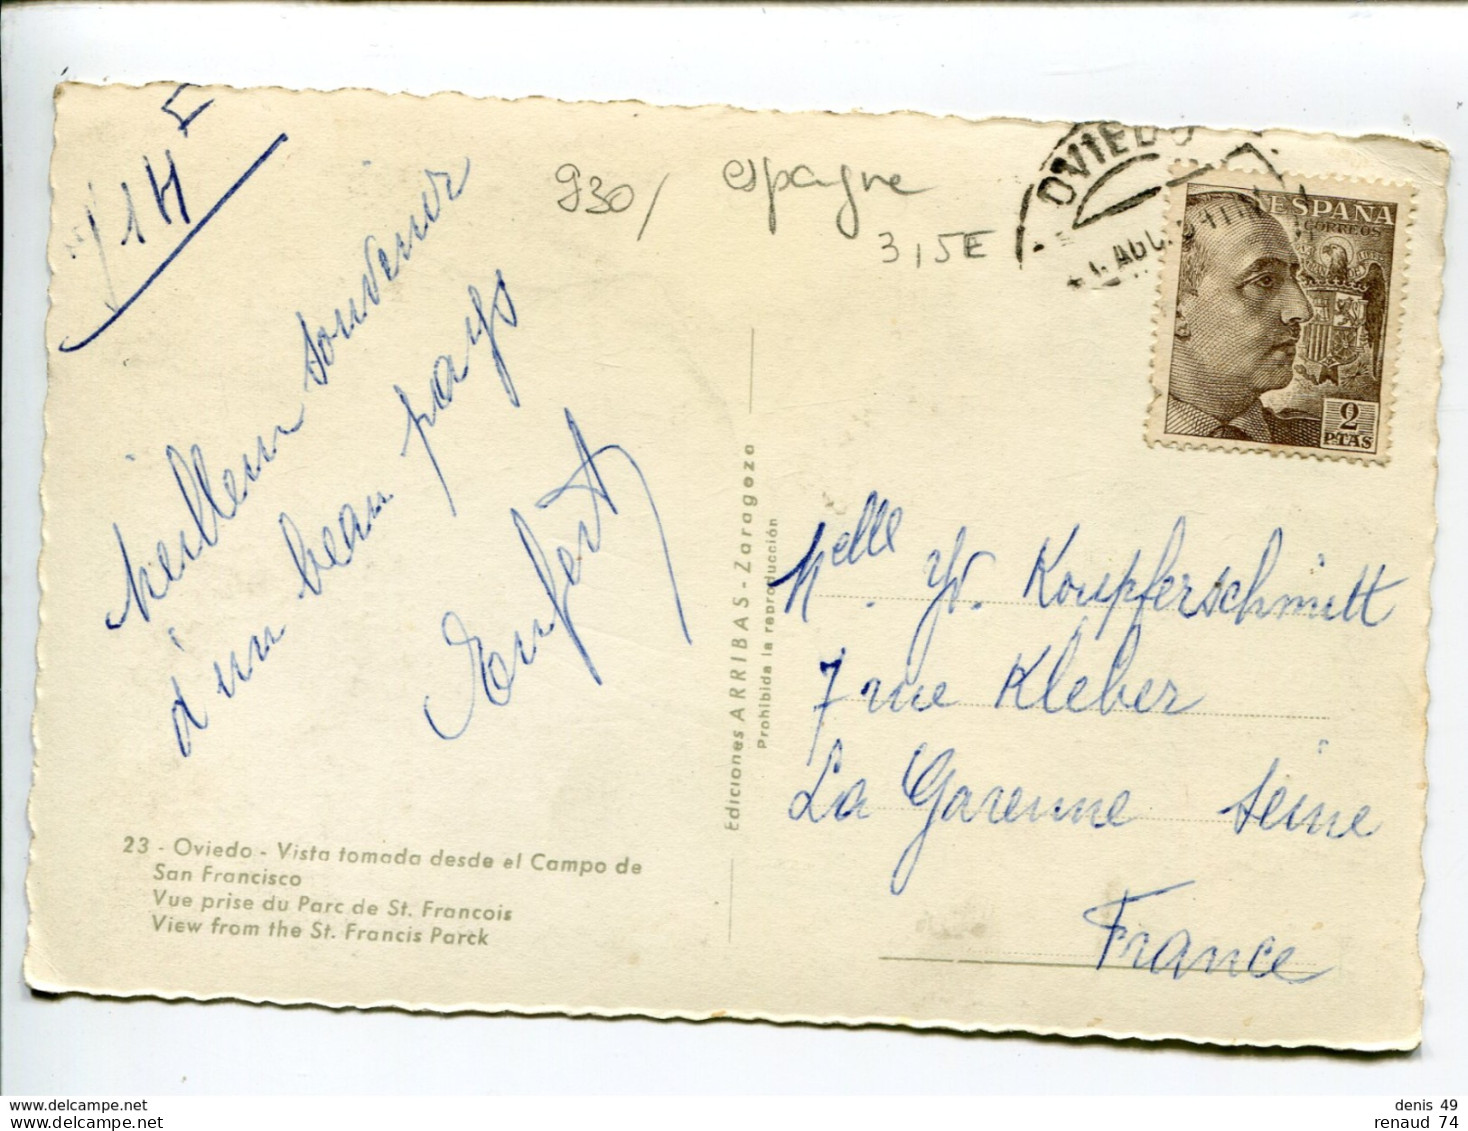 14 E
930/ espagne
3,5E
OVIEDO
AGO.
ESPAÑA
CORREOS
2
PTAS
Meilleur souvenir
d'un beau pays
Melle. Yv. Koupferschmitt
7 rue Kleber
La Garenne Seine
France
Ediciones ARRIBAS - Zaragoza
Prohibida la reproducción
23 - Oviedo - Vista tomada desde el Campo de
San Francisco
Vue prise du Parc de St. Francois
View from the St. Francis Parck
denis 49
renaud 74
www.delcampe.net
www.delcampe.net